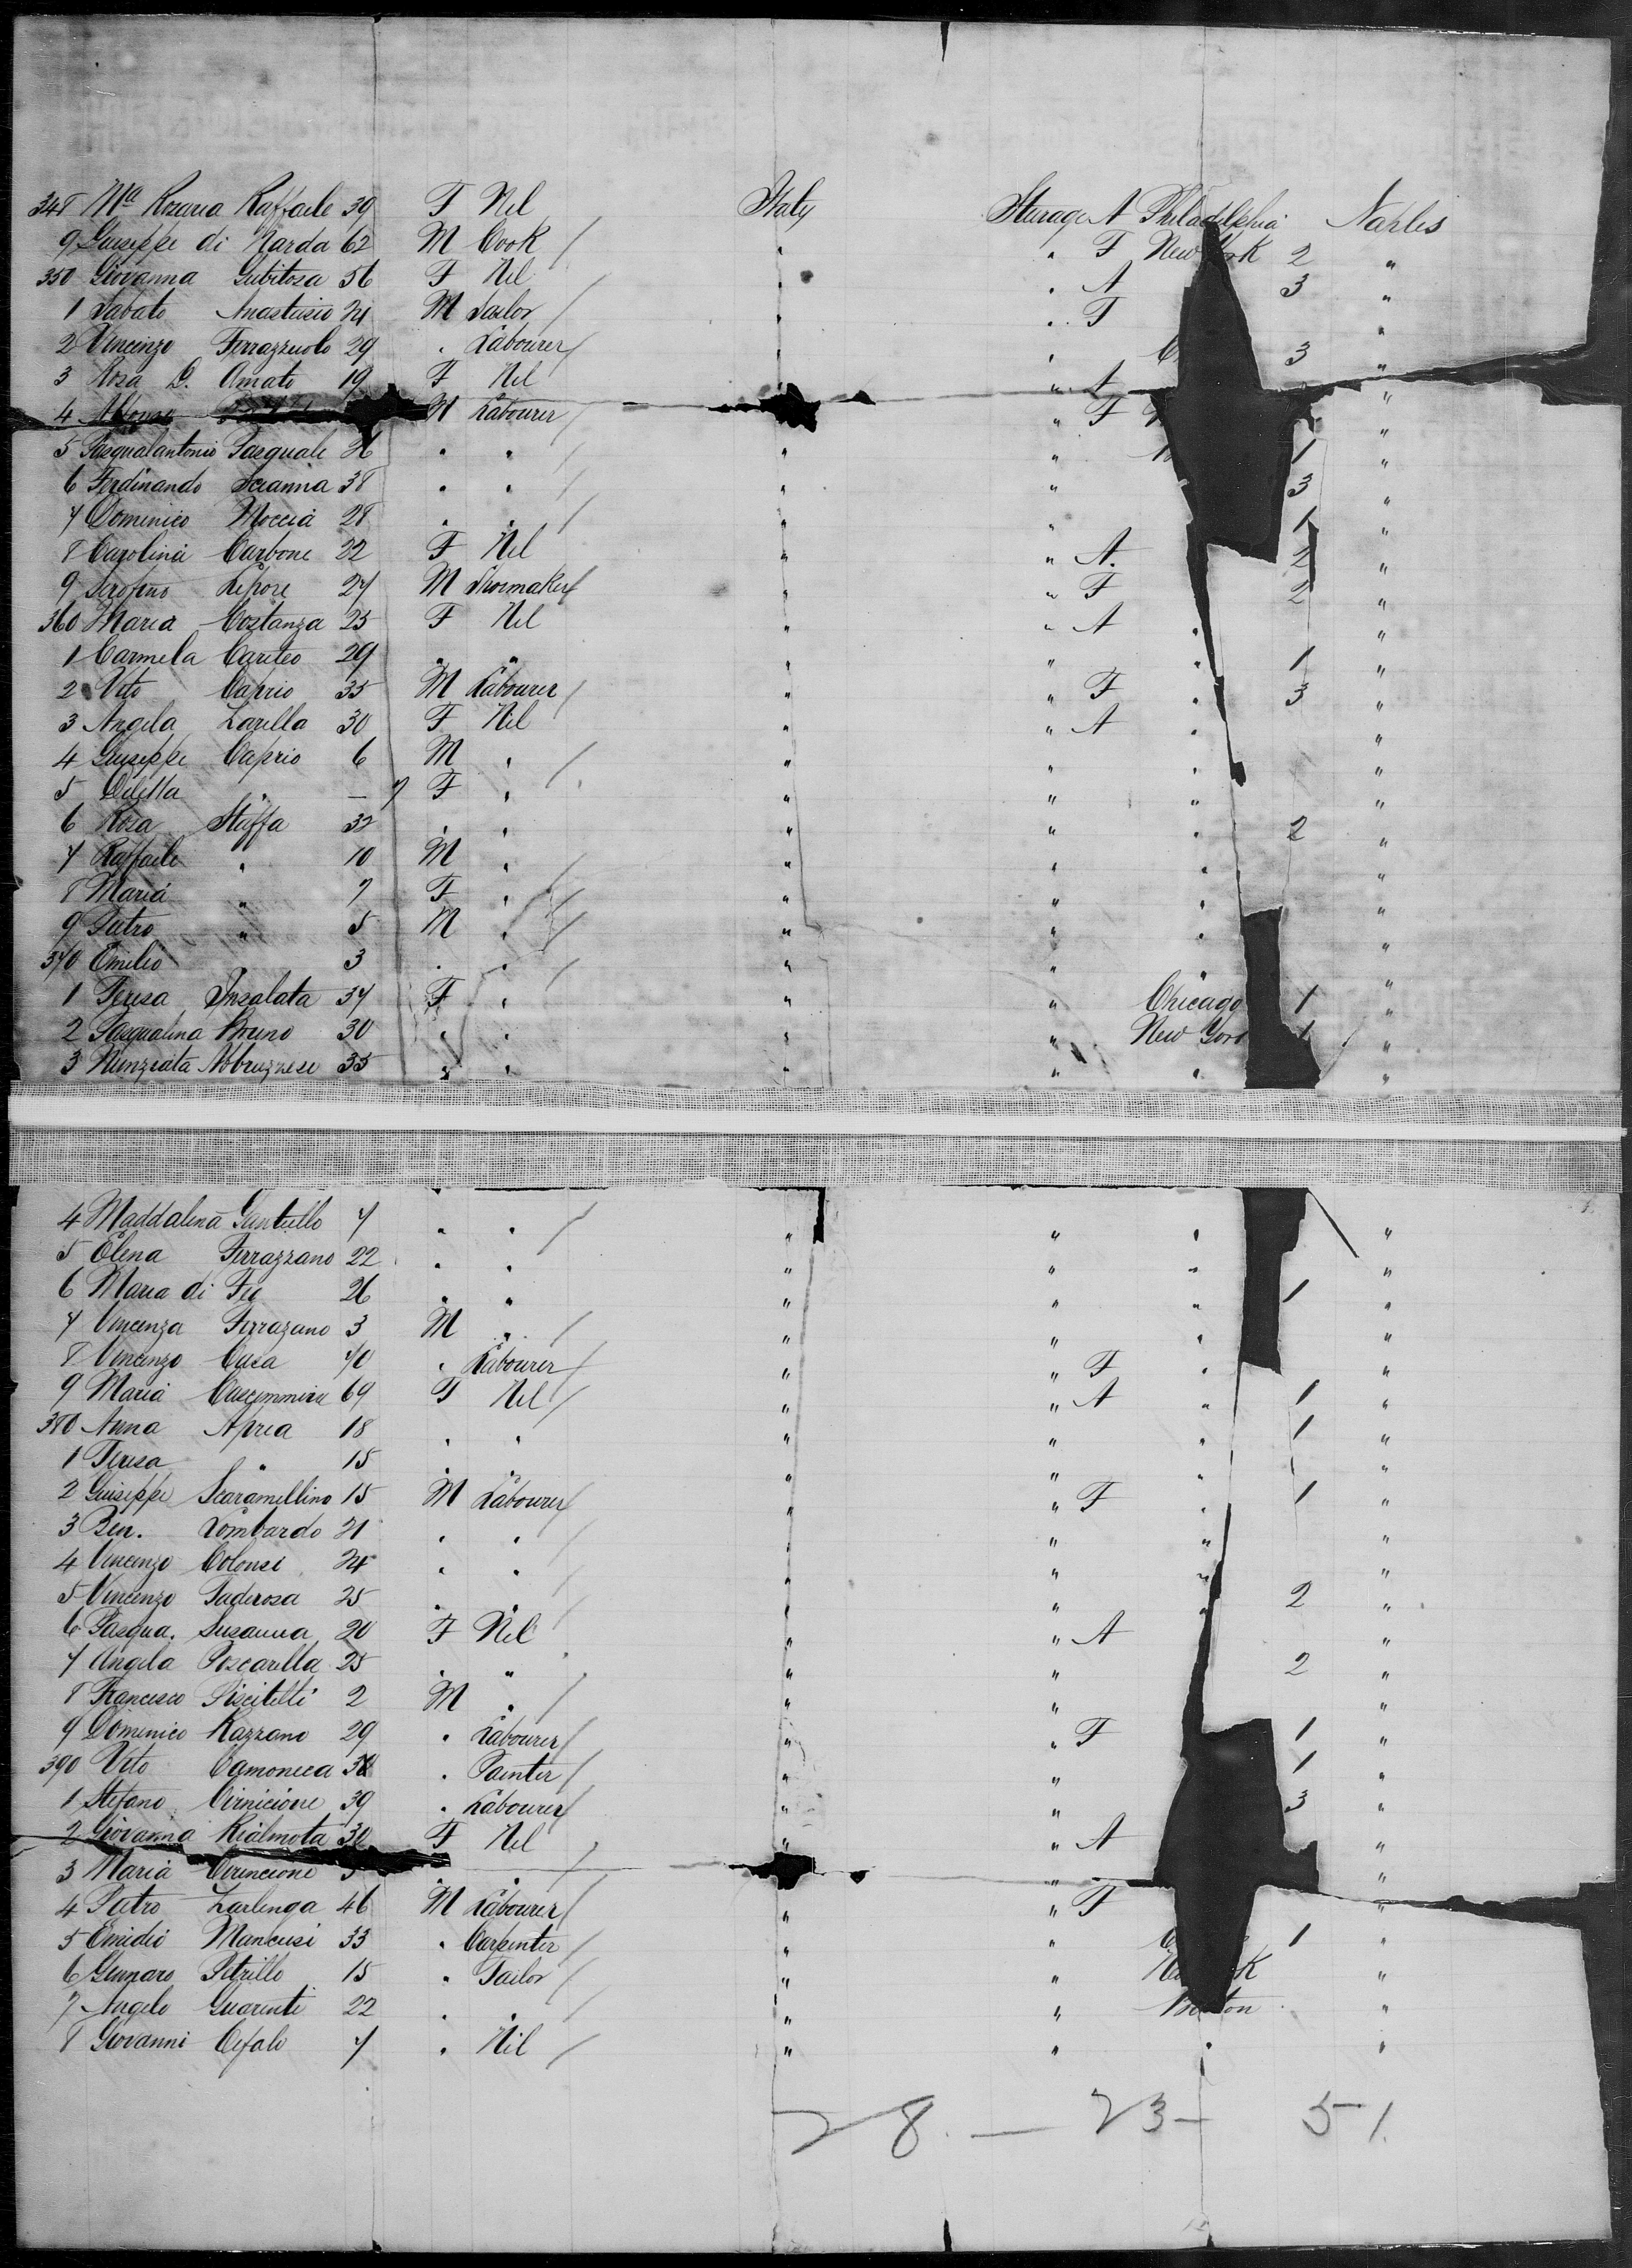 348 Ma Rosaria Raffaele 39 F Nil Italy Sturage A Philadelphia Naples
9 Giuseppe di Narda 62 M Cook / " " F New York 2 "
350 Giovanna Gubitosa 56 F Nil " " A 3 "
1 Sabato Anastasio 24 M Sailor / " " F "
2 Vincenzo Ferrazzuolo 29 " Labourer / " " 3 "
3 Rosa D. Amato 19 F Nil " " A "
4 M Labourer / " F "
5 Pasqualantonio Pasquale 26 " " / " " 1 "
6 Ferdinando Scianna 38 " " / " " 3 "
7 Domenico Moccia 28 " " / " " 1 "
8 Carolina Carbone 22 F Nil " " A. 2 "
9 Serofino Lepore 27 M Shoemaker / " " F 2 "
360 Maria Costanza 25 F Nil " " A " "
1 Carmela Cariteo 29 " " " " " 1 "
2 Vito Caprio 35 M Labourer / " " F " 3 "
3 Angela Zarella 30 F Nil " " A " "
4 Giuseppe Caprio 6 M " / " " " "
5 Diletta " — 7 F " " " " "
6 Rosa Stuffa 32 " " " " " 2 "
7 Raffaele " 10 M " / " " " "
8 Maria " 7 F " / " " " "
9 Pietro " 5 M " / " " " "
370 Emilio 3 " " / " " " "
1 Teresa Insalata 37 F " " " Chicago 1 "
2 Pasqualina Bruno 30 " " " " New York 1 "
3 Nunziata Abbruzzese 35 " " " " " "
4 Maddalena Gantullo 7 " " / " " " "
5 Elena Ferrazzano 22 " " " " " "
6 Maria di Feo 26 " " " " " 1 "
7 Vincenza Ferrazano 3 M " / " " " "
8 Vincenzo Casa 40 " Labourer / " " F " "
9 Maria 69 F Nil / " " A " 1 "
380 Anna Aprea 18 " " " " " 1 "
1 Teresa " 15 " " " " " "
2 Giuseppe Scaramellino 15 M Labourer / " " F " 1 "
3 Ben. Lombardo 21 " " / " " " "
4 Vincenzo Colonsi 24 " " / " " " "
5 Vincenzo Paderosa 25 " " / " " " 2 "
6 Pasqua. Susanna 20 F Nil " " A "
7 Angela Poscarella 25 " " " " 2 "
8 Francesco Piscitelli 2 M " / " " "
9 Domenico Razzano 29 " Labourer / " " F 1 "
390 Vito Camoneca " Painter / " " 1 "
1 Stefano Cirnicione 39 " Labourer / " " 3 "
2 Giovanna Rialmota 30 F Nil " " A "
3 Maria Cirincione " " / " "
4 Pietro Zarlenga 46 M Labourer / " " F "
5 Emidio Mancusi 33 " Carpenter / " " 1 "
6 Gennaro Petrillo 15 " Tailor / " " "
7 Angelo Guarenti 22 " " / " " Boston "
8 Giovanni Cefalo 7 " Nil / " " " "
28 — 23 — 51